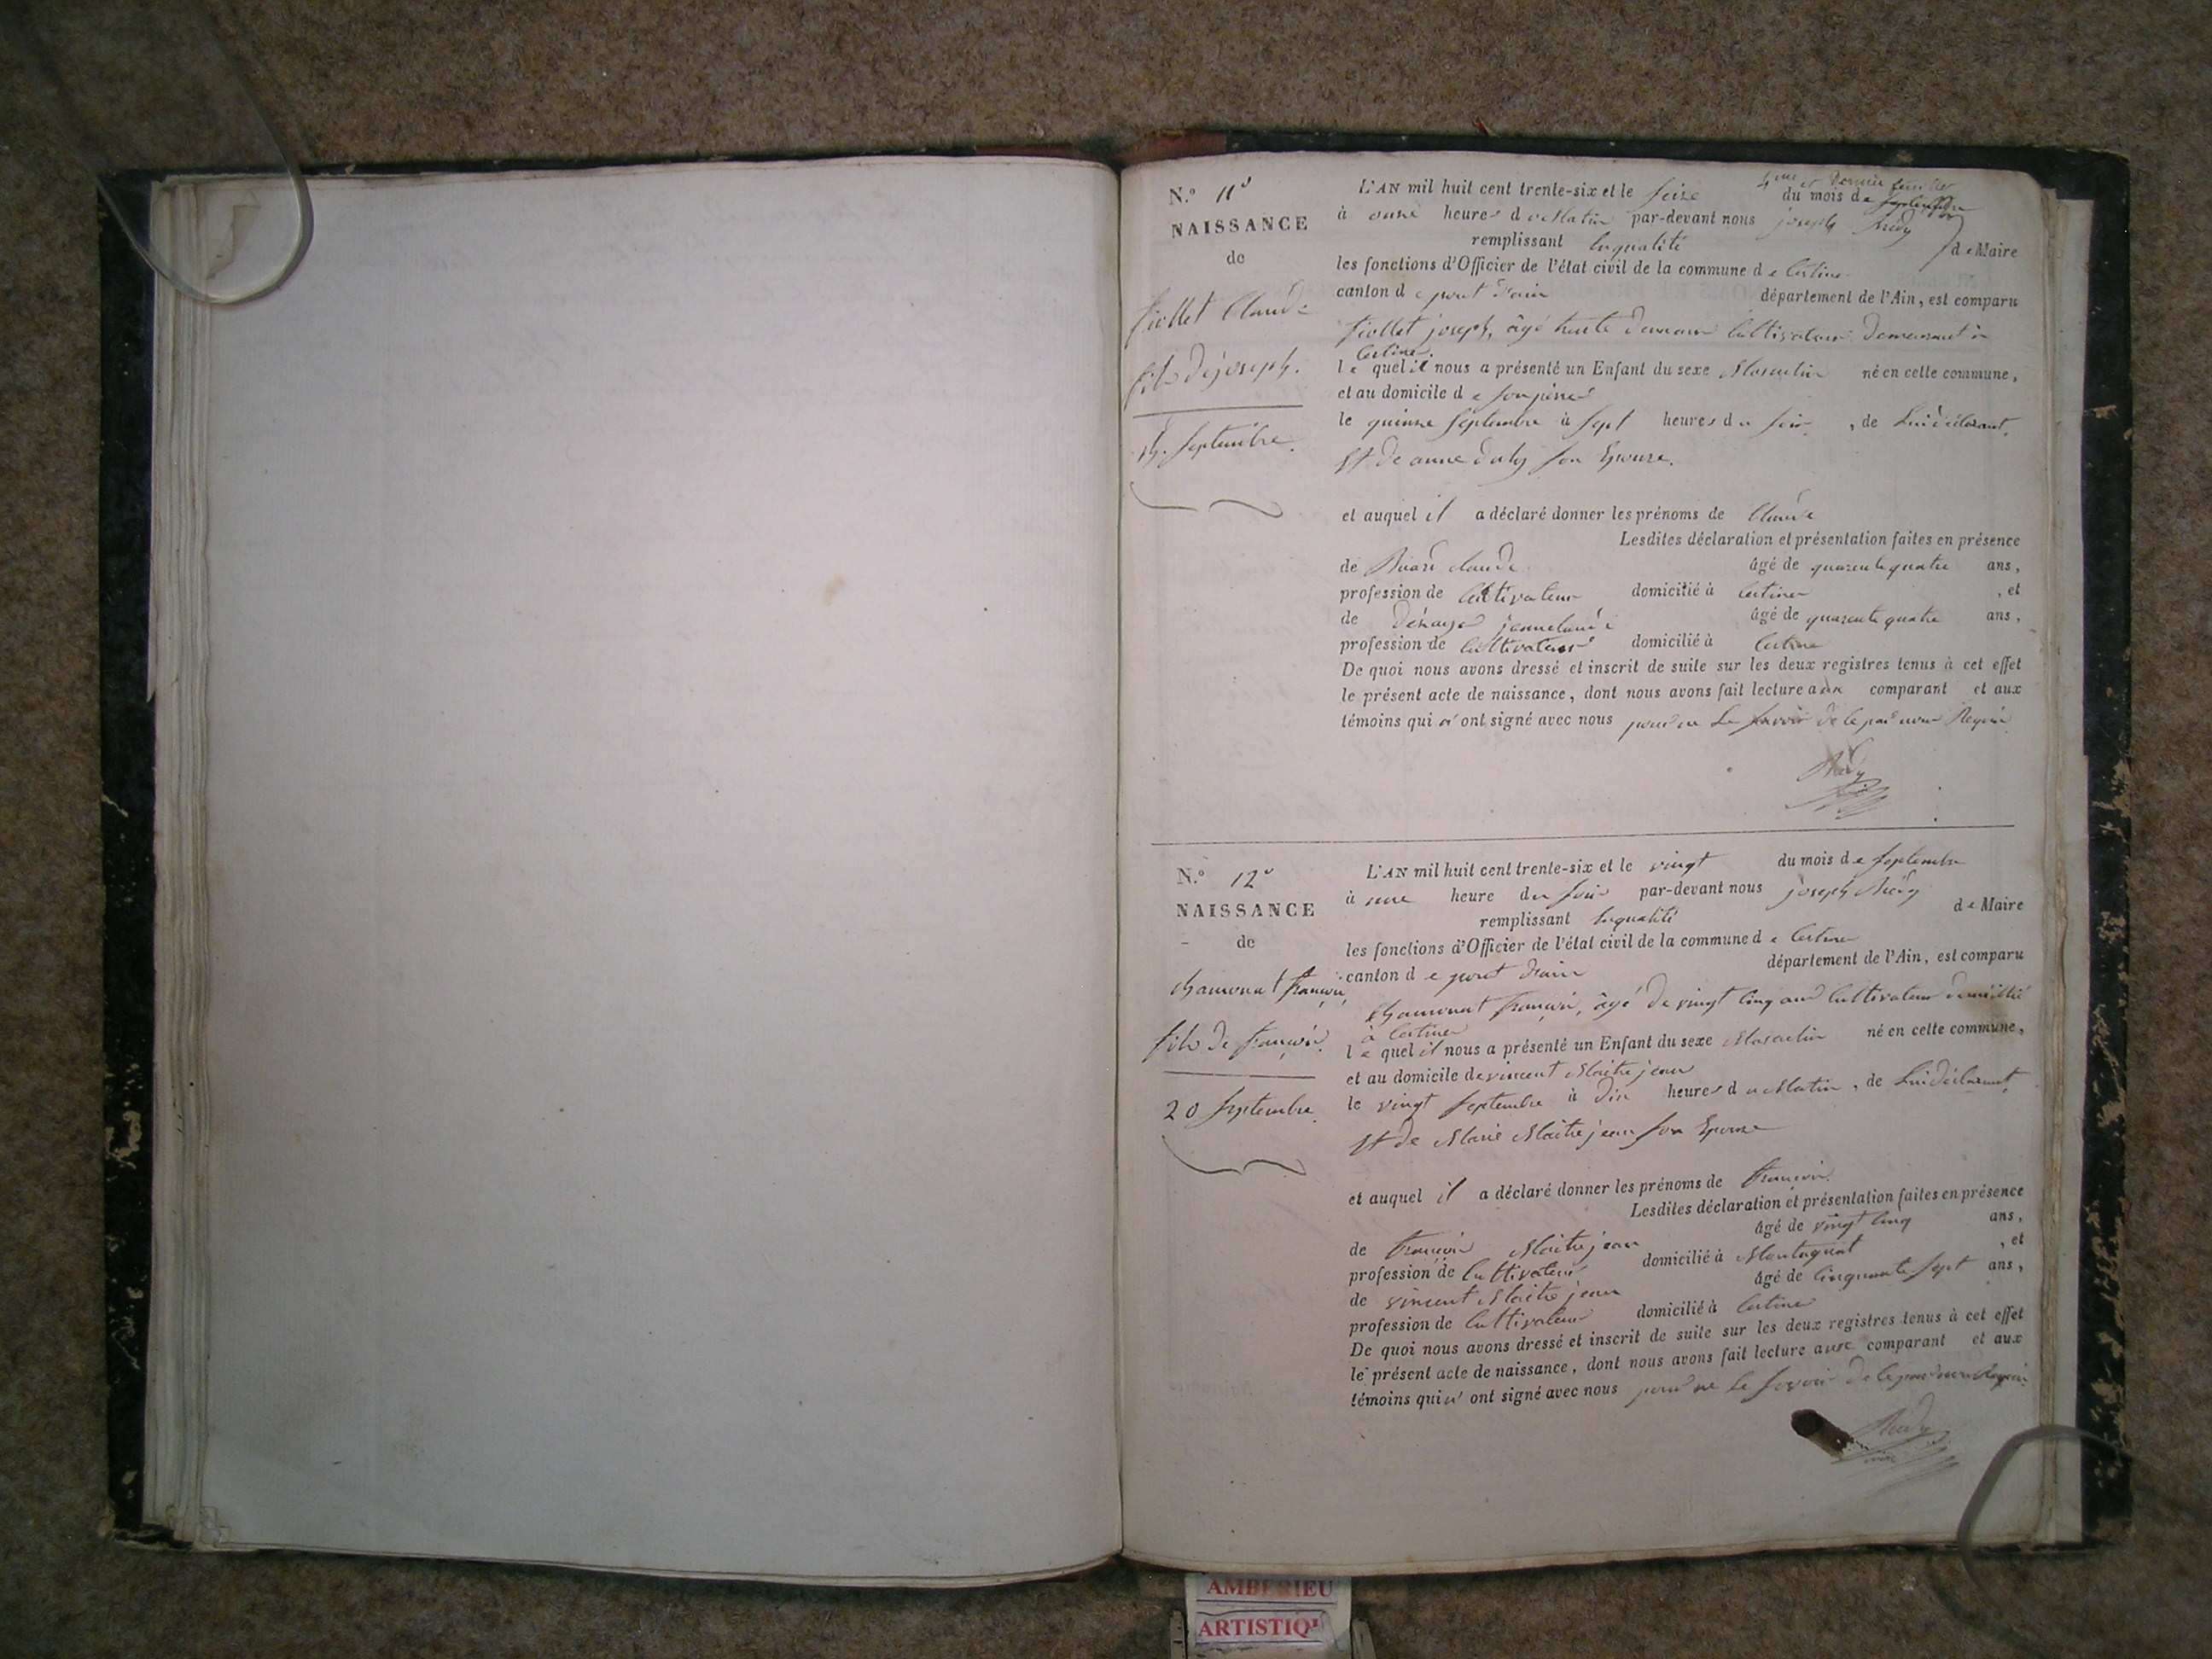 4me et Dernier feuillet
N.° 11e
NAISSANCE
de
fiollet Claude
fils de joseph.
15. Septembre.
L'AN mil huit cent trente-six et le seize du mois de Septembre
à onze heures du Matin par-devant nous joseph
remplissant la qualité de Maire
les fonctions d'Officier de l'état civil de la commune de Certine
canton de pont d'ain département de l'Ain, est comparu
fiollet joseph, âgé trente deux ans Cultivateur Demeurant à
Certine.
lequel il nous a présenté un Enfant du sexe Masculin né en cette commune,
et au domicile de son père
le quinze Septembre à Sept heures du soir, de Lui déclarant,
Et de anne son Epouse.
et auquel il a déclaré donner les prénoms de Claude
Lesdites déclaration et présentation faites en présence
de claude âgé de quarente quatre ans,
profession de Cultivateur domicilié à Certine, et
de jean claude âgé de quarente quatre ans,
profession de Cultivateur domicilié à Certine
De quoi nous avons dressé et inscrit de suite sur les deux registres tenus à cet effet
le présent acte de naissance, dont nous avons fait lecture aux comparant et aux
témoins qui n'ont signé avec nous pour ne Le savoir de ce par nous Requis
N.° 12e
NAISSANCE
de
chamonat françois
fils de françois.
20 Septembre.
L'AN mil huit cent trente-six et le vingt du mois de Septembre
à une heure du soir par-devant nous joseph
remplissant la qualité de Maire
les fonctions d'Officier de l'état civil de la commune de Certine
canton de pont d'ain département de l'Ain, est comparu
Chamonat françois, âgé de vingt cinq ans Cultivateur domicilié
à Certine
lequel il nous a présenté un Enfant du sexe Masculin né en cette commune,
et au domicile de vincent Maitrejean
le vingt Septembre à dix heures du Matin, de Lui déclarant,
Et de Marie Maitrejean son Epouse
et auquel il a déclaré donner les prénoms de françois.
Lesdites déclaration et présentation faites en présence
de françois Maitrejean âgé de vingt cinq ans,
profession de Cultivateur domicilié à Montagnat, et
de vincent Maitrejean âgé de Cinquante Sept ans,
profession de Cultivateur domicilié à Certine
De quoi nous avons dressé et inscrit de suite sur les deux registres tenus à cet effet
le présent acte de naissance, dont nous avons fait lecture aux comparant et aux
témoins qui n'ont signé avec nous pour ne Le savoir de ce par nous Requis
AMBERIEU
ARTISTIQU